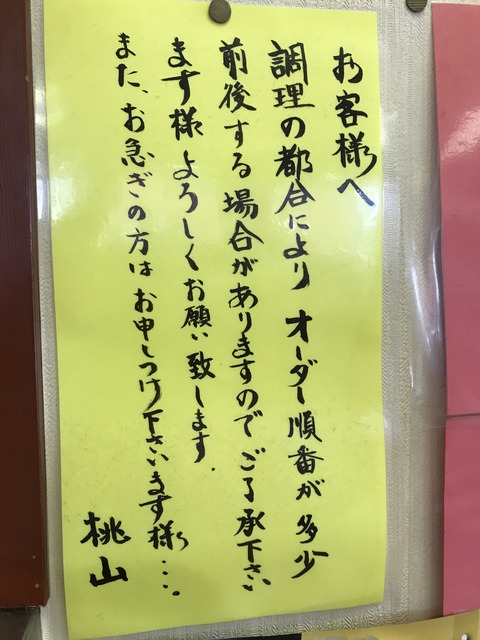 お客様へ
調理の都合により オーダー順番が多少
前後する場合がありますのでご了承下さい
ます様よろしくお願い致します.
また、お急ぎの方はお申しつけ下さいます様….
桃山